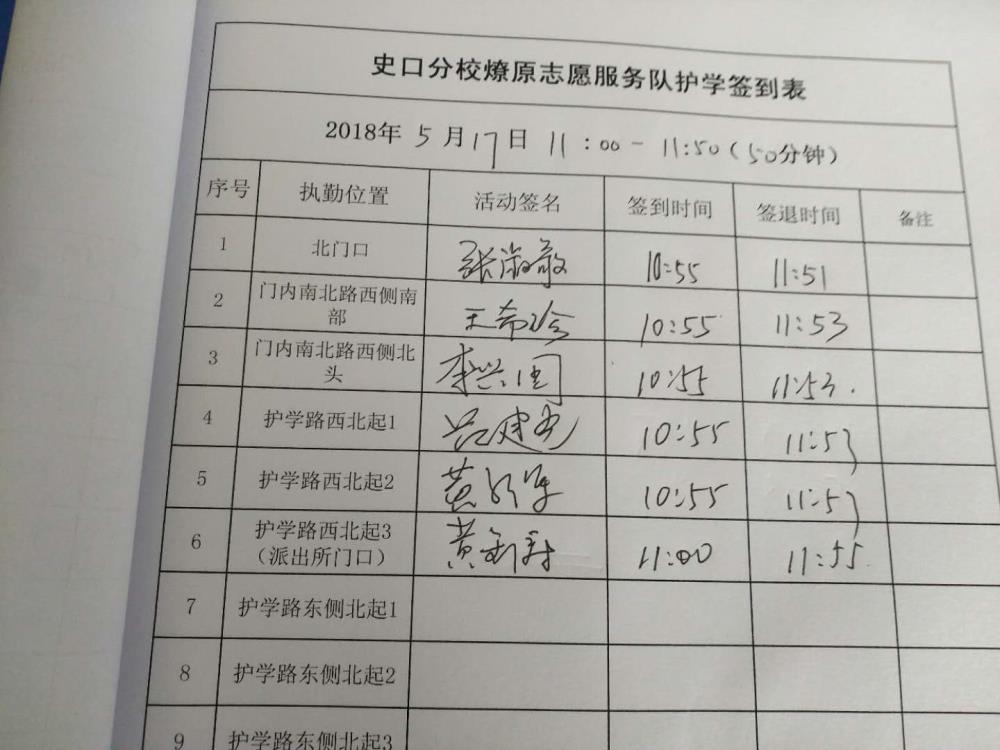 史口分校燎原志愿服务队护学签到表
2018年 5 月 17 日 11 : 00 - 11:50 ( 50分钟)
序号 执勤位置 活动签名 签到时间 签退时间 备注
1 北门口 张淑敏 10:55 11:51
2 门内南北路西侧南部 王希珍 10:55 11:53
3 门内南北路西侧北头 李兴国 10:55 11:53.
4 护学路西北起1 吕建 10:55 11:53
5 护学路西北起2 黄 军 10:55 11:53
6 护学路西北起3（派出所门口） 黄 11:00 11:55.
7 护学路东侧北起1
8 护学路东侧北起2
9 护学路东侧北起3